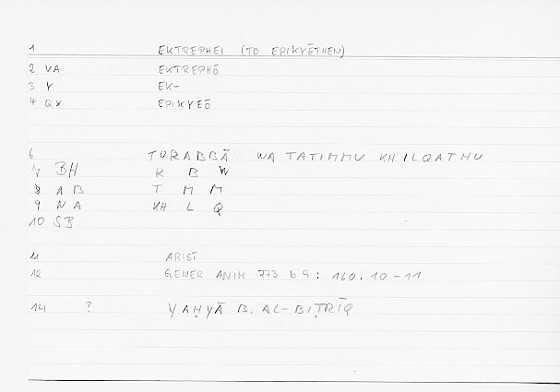 1 EKTREPHEI (TO EPIKYĒTHEN)
2 VA EKTREPHŌ
3 Y EK-
4 QX EPIKYEŌ
6 TURABBĀ WA TATIMMU KHILQATHU
7 BH R B W
8 AB T M M
9 NA KH L Q
10 SB
11 ARIST
12 GENER ANIM 773 b 9 : 160.10-11
14 ? YAḤYĀ B. AL-BIṬRĪQ